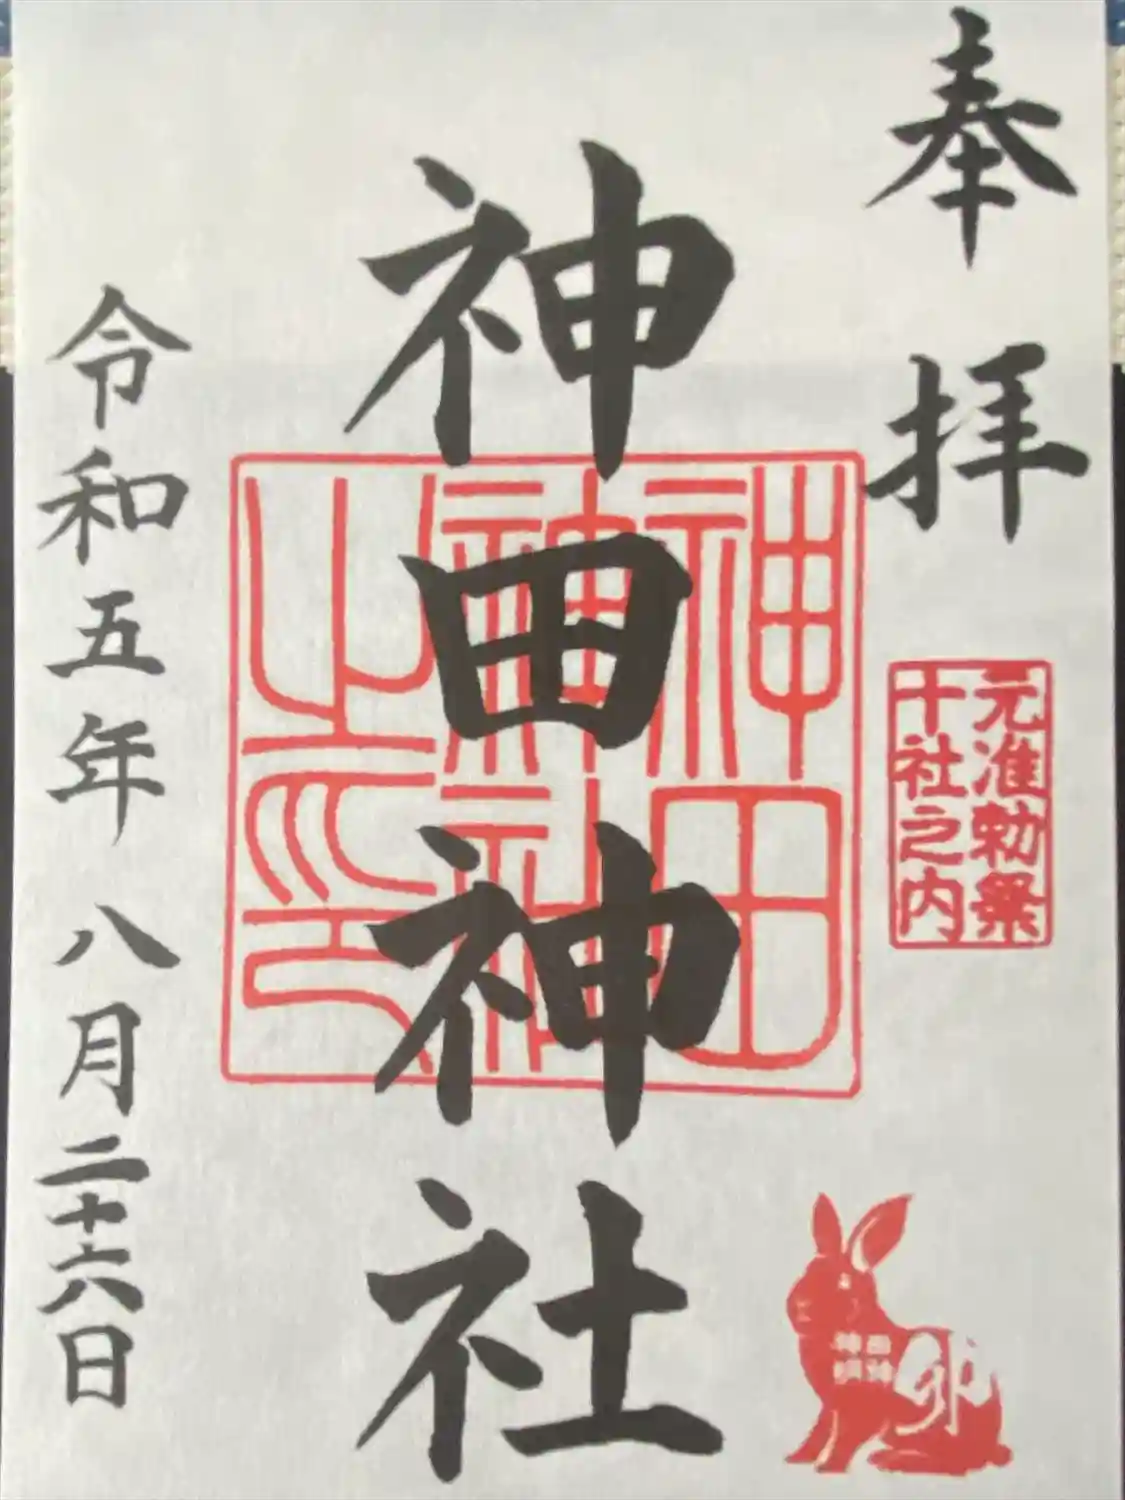 奉拝
元准勅祭
十社之内
神田神社
神田
神社
之印
卯
令和五年 八月二十六日